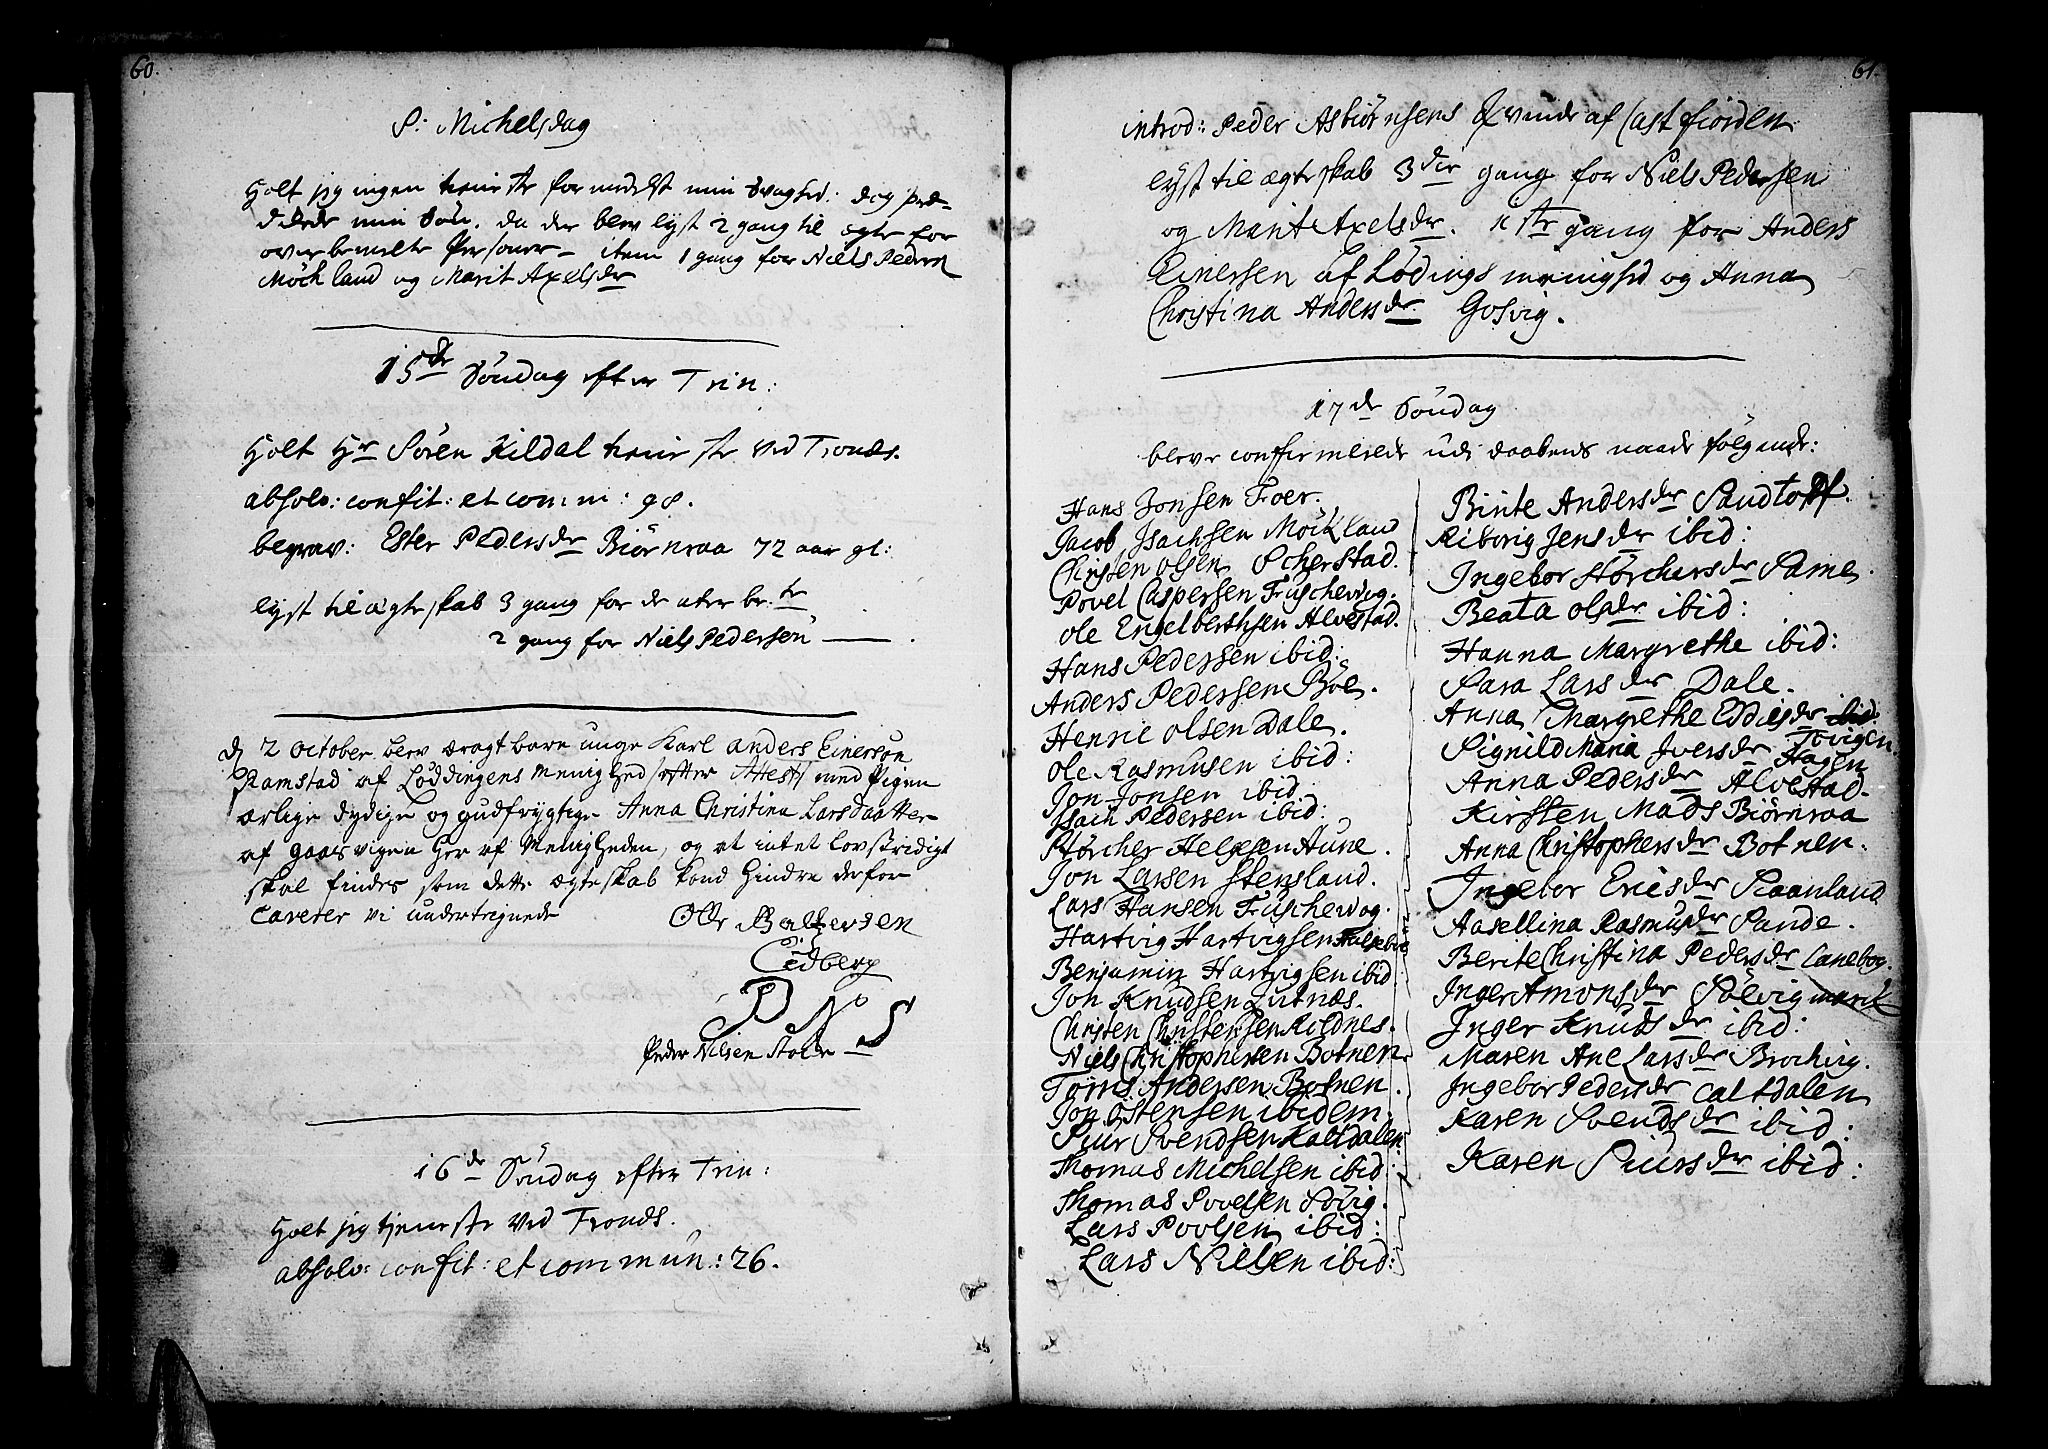 60.
S: Michelsdag
Holt jeg ingen tieniste formedelst min Svaghed: dog præ-
dikede min Søn. da der blev lyst 2 gang til ægte for
overbemelte Personer – item 1 gang for Niels Peders
Möckland og Marit Axelsdr
15de Söndag efter Trin:
Holt Hr Sören Kildal tieniste ved Tronds.
absolv: confit: et comm: 98.
begrav: Ester Pedersdr Biörnraa 72 aar gl:
lyst til ægteskab 3 gang for de ater be:te
2 gang for Niels Pedersen ——.
d 2 October blev ægtbare unge Karl anders Einersøn
Ramstad af Löddingens Menighed efter Attest med Pigen
ærlige dydige og gudfrygtige Anna Christina Larsdaatter
af gaasvigen Her af Menigheden, og at intet Lovstridigt
skal findes som dette ægteskab kand Hindre derfor
Caverer vi undertegnede
Olle Baltzersen
Cidberg
P N S
Peder Nilsen Stolle
16de Söndag efter Trin:
Holt jeg tjeneste ved Tronds.
absolv: confit: et commun: 26.
61.
introd: Peder Asbiörnsens Qvinde af Castfiorden
lyst til ægteskab 3die gang for Niels Pedersen
og Marit Axelsdr. 1ste gang for Anders
Einersen af Lødings menighed og Anna
Christina Andersdr Gosvig.
17de Söndag
bleve confirmerede udi daabens naade følgende:
Hans Jonsen Foer.
Jacob Isachsen Möckland
Christen Olsen Scherstad.
Povel Caspersen Fuschevog.
Ole Engelberthsen Alvestad.
Hans Pedersen ibid:
Anders Pedersen Böe.
Henric Olsen Dale
Ole Rasmusen ibid:
Jon Jonsen ibid
Isach Pedersen ibid:
Störcher Helgesen Aune.
Jon Larsen Stensland.
Lars Hansen Fuschevog.
Hartvig Hartvigsen
Benjamin Hartvigsen ibid
Jon Knudsen Lutnæs.
Christen Christensen Kildnes.
Niels Christophersen Botnen
Törris Andersen Botnen.
Jon Östensen ibidem.
Siur Svendsen Kaltdalen
Thomas Michelsen ibid
Thomas Povelsen Sörvig.
Lars Povlsen ibid:
Lars Nielsen ibid:
Birite Andersdr Sandtorf.
Riborig Jensdr ibid:
Ingebor Störchersdr Same.
Beata Olsdr ibid:
Hanna Margrethe ibid:
Sara Larsdr Dale.
Anna Margrethe Eddisdr ibid:
Tovigen
Signild Maria Iversdr Hagen
Anna Pedersdr Alvestad.
Kirsten Mads Biörnraa
Anna Christophersdr Botnen.
Ingebor Ericsdr Skaanland
Aasellina Rasmusdr Sande.
Berite Christina Pedersdr Lanebog.
Inger Amonsdr Sölvigmark
Inger Knudsdr ibid:
Maren Ane Larsdr Brochvig.
Ingebor Pedersdr Caltdalen
Karen Svendsdr ibid:
Karen Siursdr ibid: